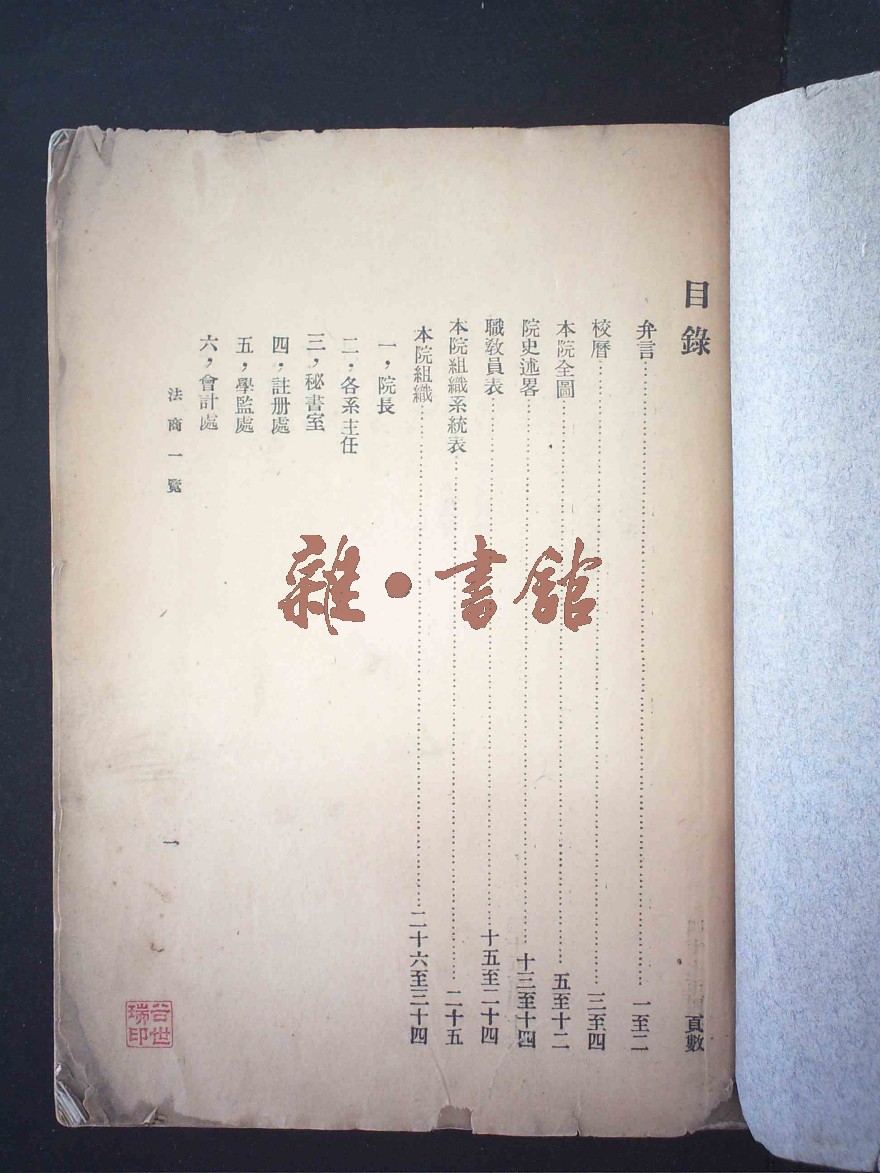 目錄 頁數
弁言 一至二
校曆 三至四
本院全圖 五至十二
院史述畧 十三至十四
職敎員表 十五至二十四
本院組織系統表 二十五
本院組織 二十六至三十四
一，院長
二，各系主任
三，秘書室
四，註册處
五，學監處
六，會計處
法商一覽
一
雜·書館
谷世瑞印